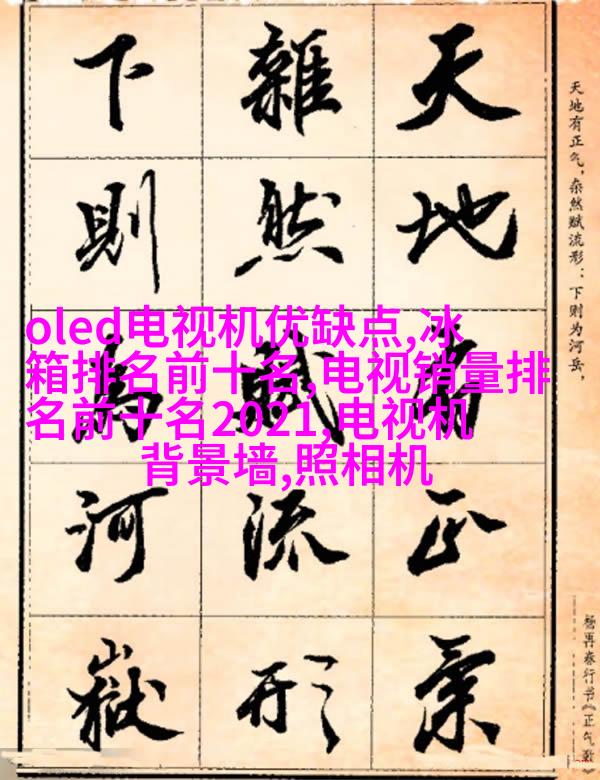 天地有正氣
雜然賦流形
下則為河嶽
天地有正气，杂然赋流形：下则为河岳，
杨再春行书《正气歌》
oled电视机优缺点,冰
箱排名前十名,电视销量排
名前十名2021,电视机
背景墙,照相机